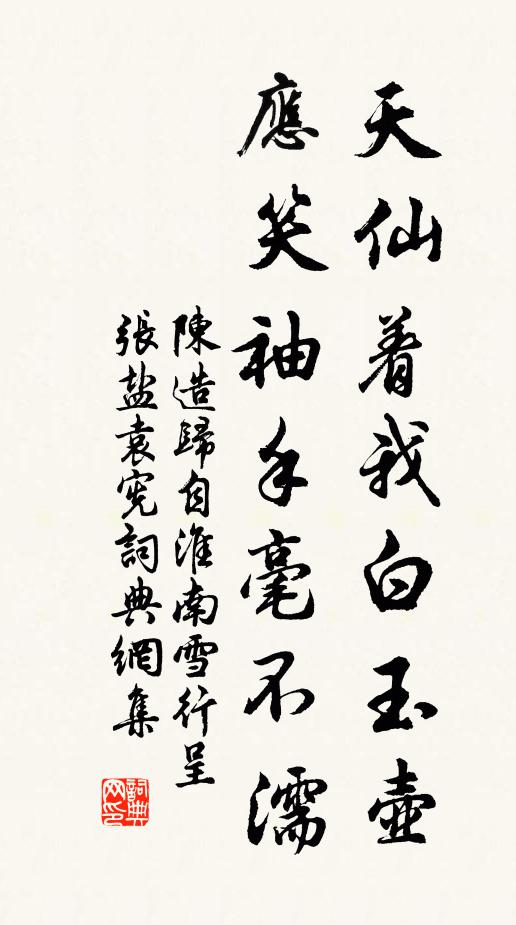 天仙着我白玉壺
應笑袖手毫不濡
陳造歸自淮南雪行呈
張盐袁宪詞典網集
詞典网印